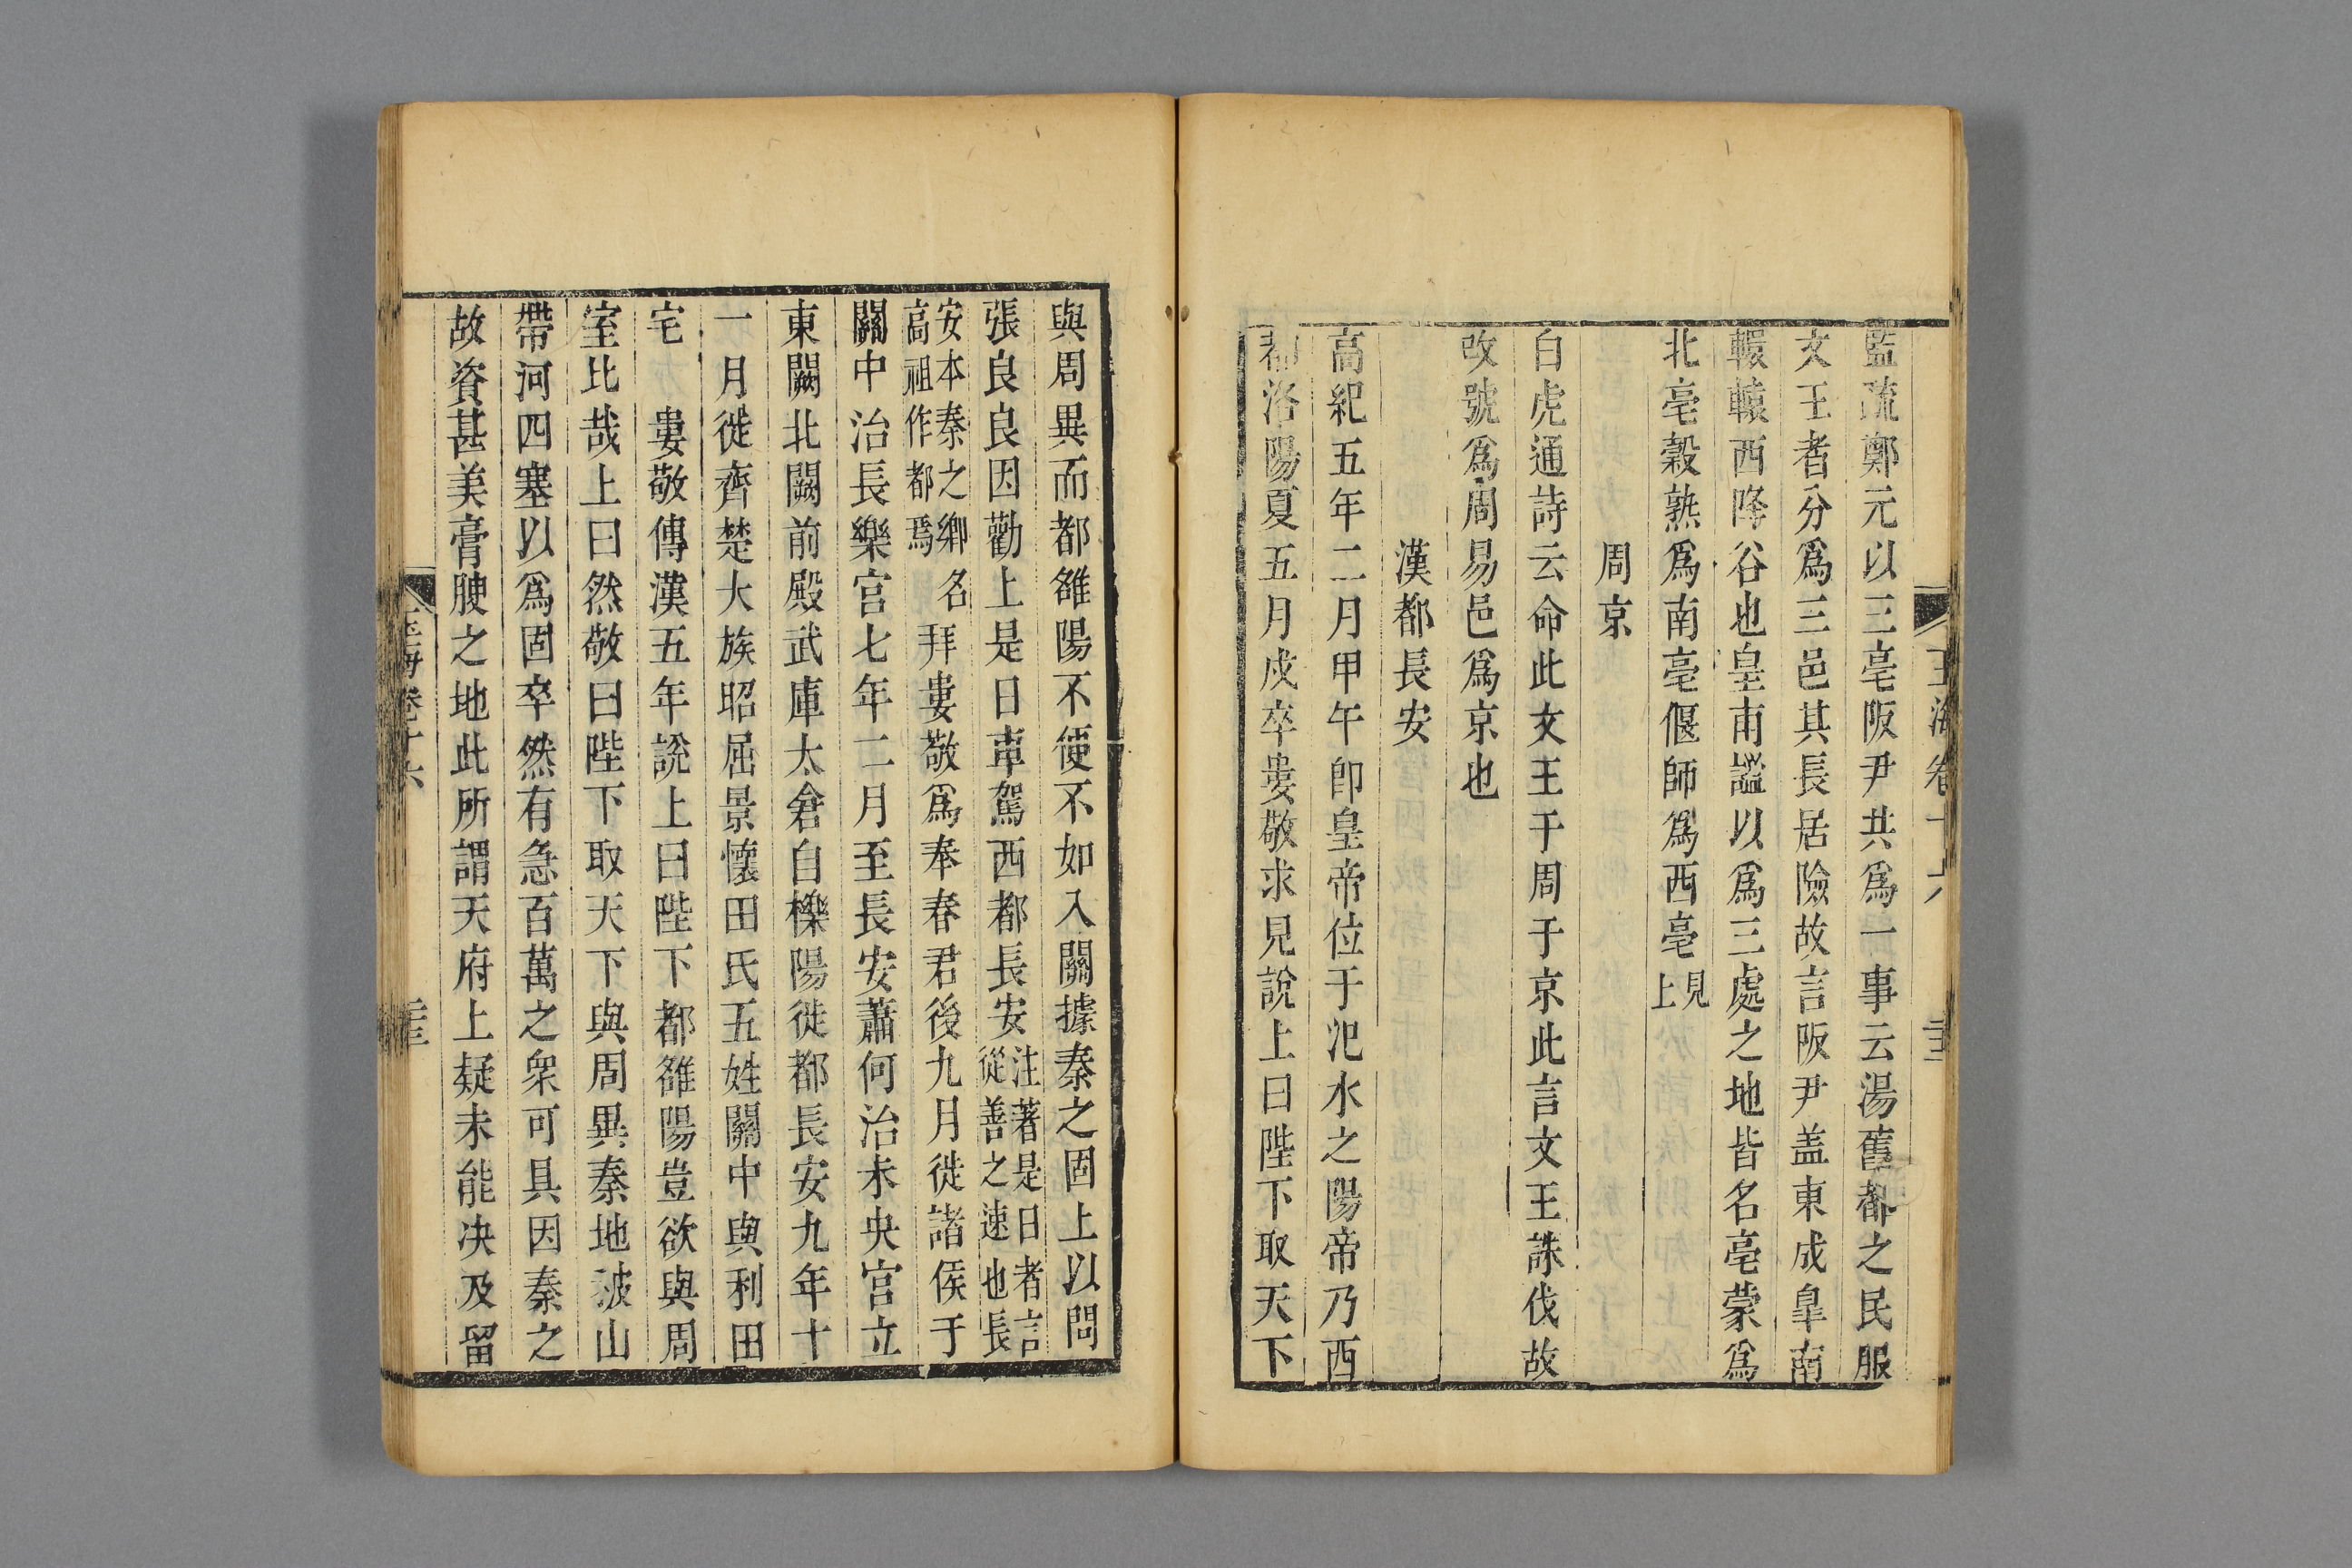 監疏鄭元以三亳阪尹共爲一事云湯舊都之民服
文王者分爲三邑其長居險故言阪尹盖東成臯南
轘轅西降谷也皇甫謐以爲三處之地皆名亳蒙爲
北亳穀熟爲南亳偃師爲西亳見上
周京
白虎通詩云命此文王于周于京此言文王誅伐故
改號爲周易邑爲京也
漢都長安
高紀五年二月甲午卽皇帝位于汜水之陽帝乃西
都洛陽夏五月戍卒婁敬求見說上曰陛下取天下
與周異而都雒陽不便不如入關據秦之固上以問
張良良因勸上是日車駕西都長安注著是日者言從善之速也長
安本秦之鄉名高祖作都焉拜婁敬爲奉春君後九月徙諸侯于
關中治長樂宮七年二月至長安蕭何治未央宮立
東闕北闕前殿武庫太倉自櫟陽徙都長安九年十
一月徙齊楚大族昭屈景懷田氏五姓關中與利田
宅婁敬傳漢五年說上曰陛下都雒陽豈欲與周
室比哉上曰然敬曰陛下取天下與周異秦地被山
帶河四塞以爲固卒然有急百萬之衆可具因秦之
故資甚美膏腴之地此所謂天府上疑未能决及留
玉海卷十六